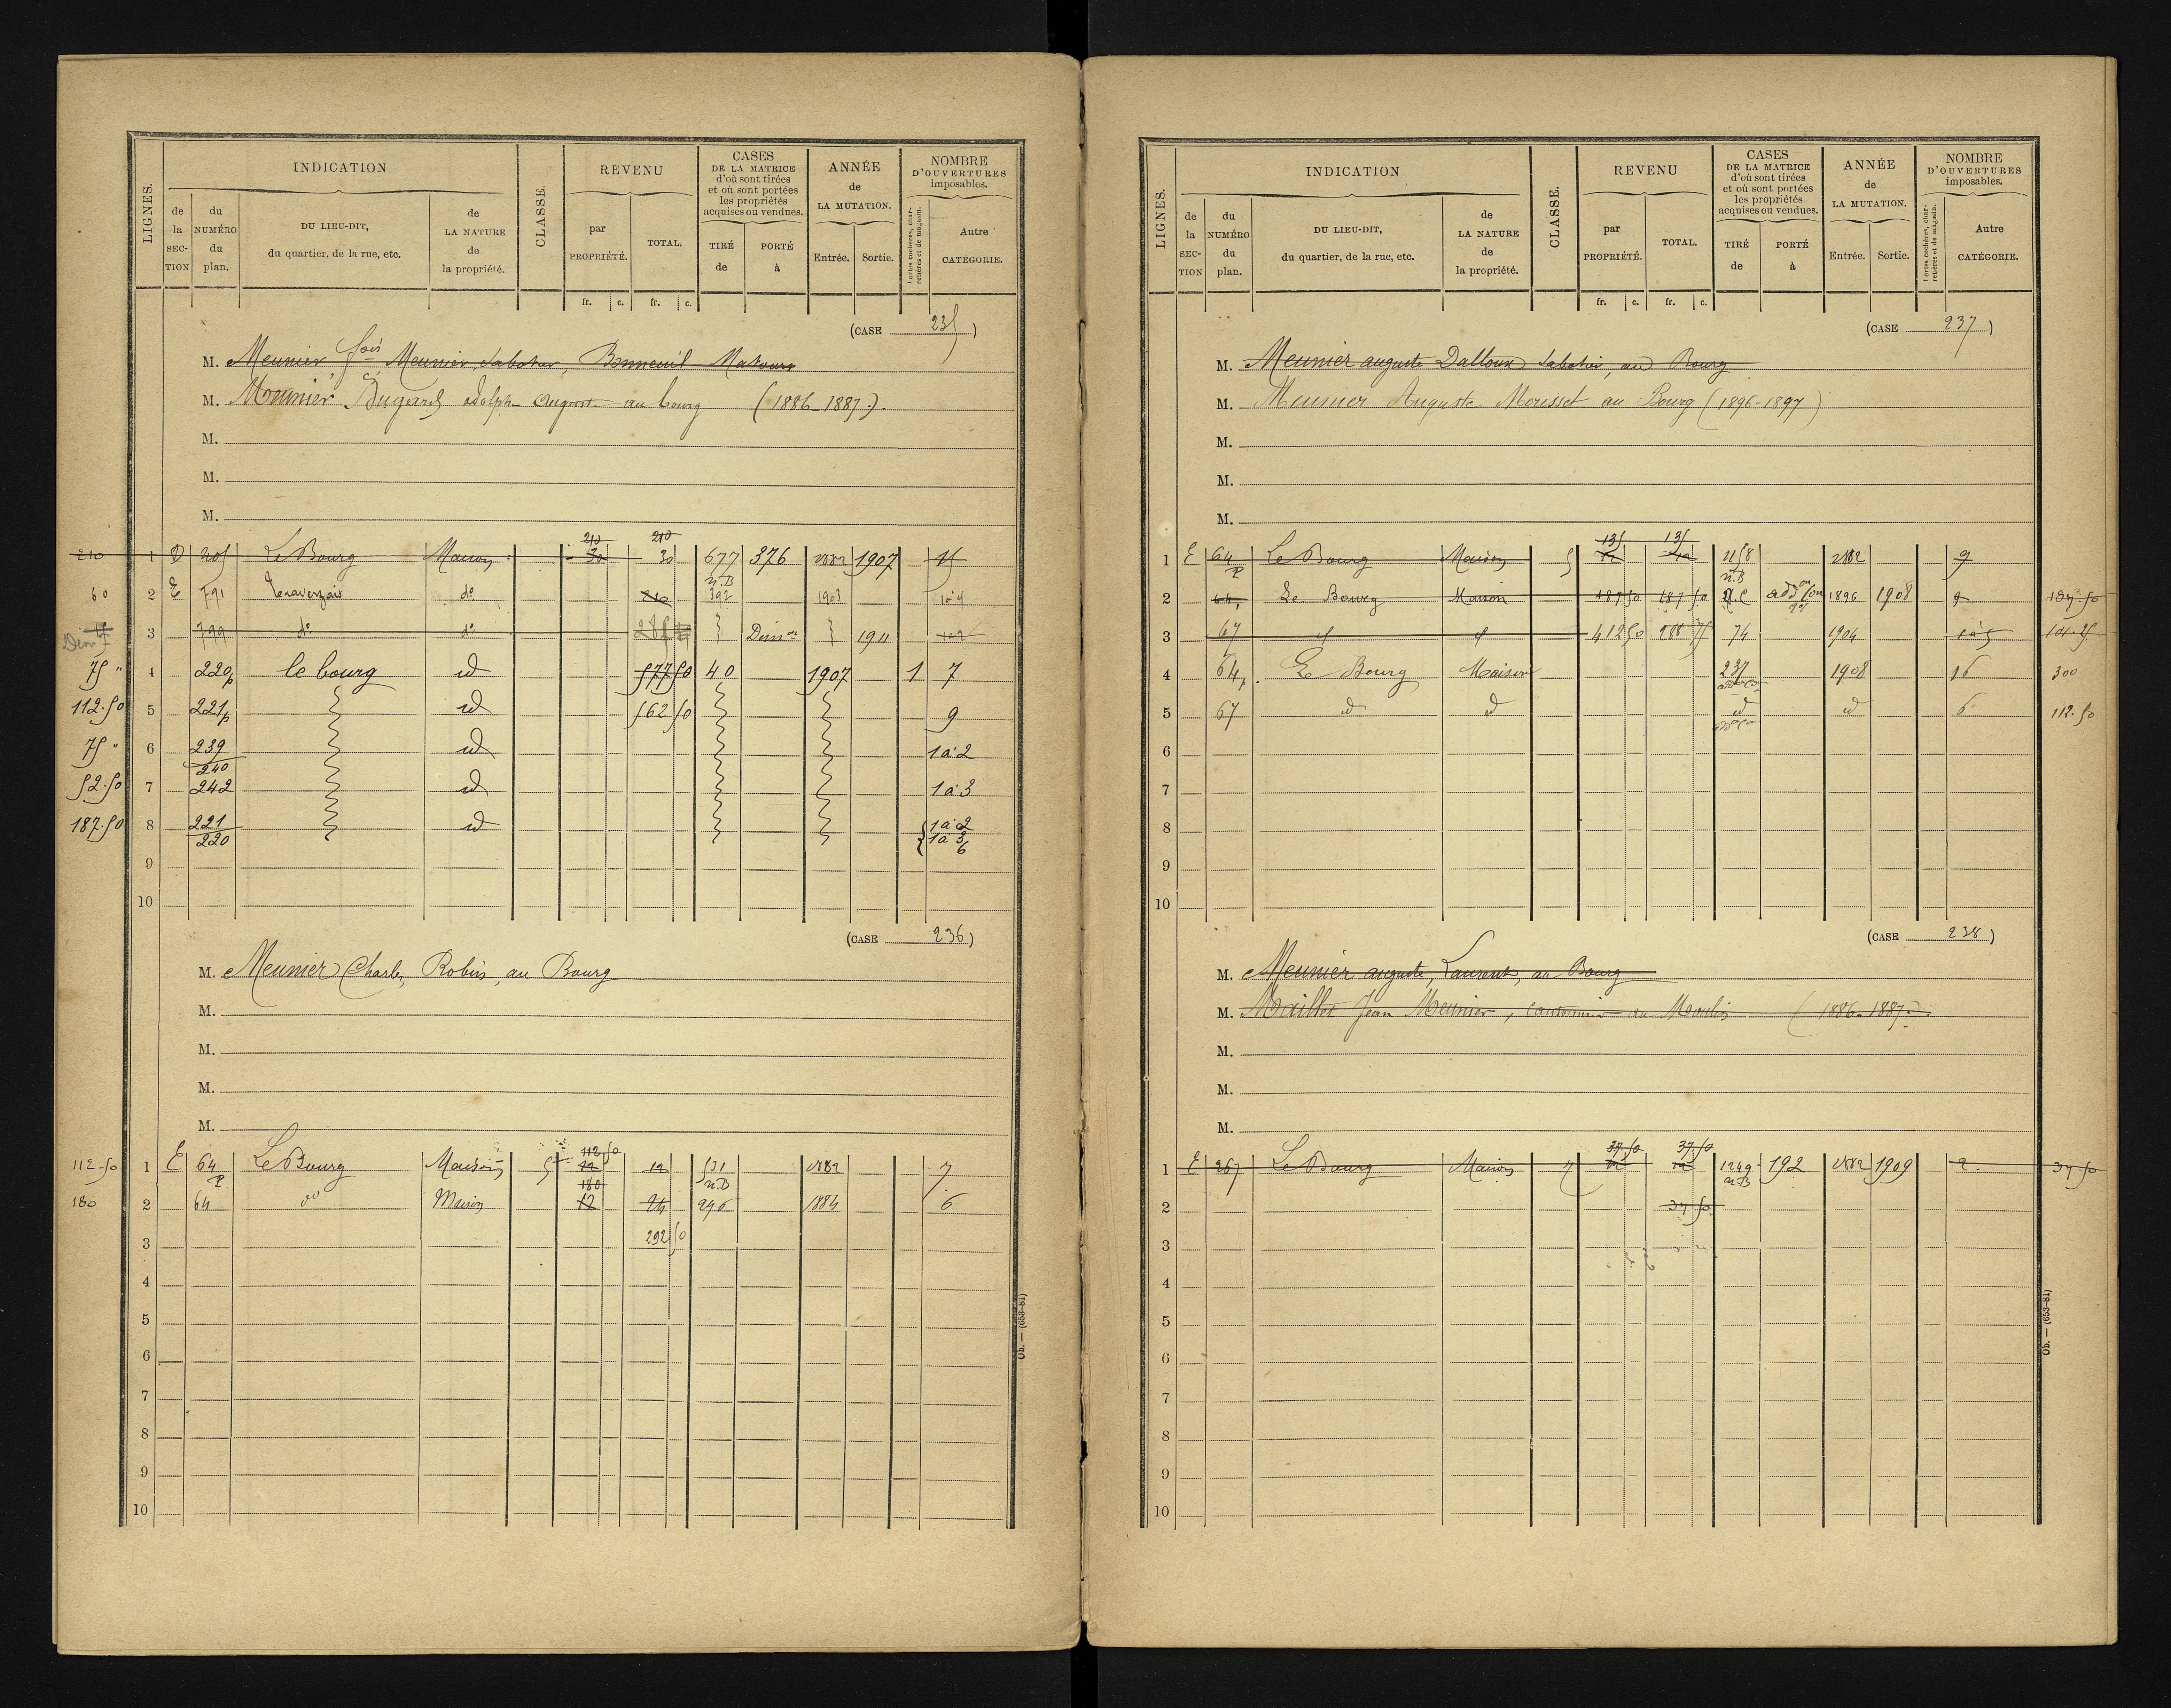 LIGNES.
INDICATION
de la SECTION
du NUMÉRO du plan.
DU LIEU-DIT, du quartier, de la rue, etc.
de LA NATURE de la propriété.
CLASSE.
REVENU
par PROPRIÉTÉ.
TOTAL.
CASES DE LA MATRICE d'où sont tirées et où sont portées les propriétés acquises ou vendues.
TIRÉ de
PORTÉ à
ANNÉE de LA MUTATION.
Entrée.
Sortie.
NOMBRE D'OUVERTURES imposables.
Portes cochères, charretières et de magasin.
Autre CATÉGORIE.
fr. c. fr. c.
(CASE 235)
M. Meunier fois Meunier, Sabotier, Bonneuil-Matours
M. Meunier Dugard adolphe Auguste au bourg (1886-1887).
M.
M.
M.
210 1 D 205 Le Bourg Maison 210 30 210 30 677 376 1882 1907 11
60 2 E 791 do 210 n.B 392 1903 1 à 4
3 799 do do Dem on 1911
75 " 4 220p le bourg id 577 50 40 1907 1 7
112.50 5 221p id 562 50 9
75 " 6 239 240 id 1 à 2
52.50 7 242 id 1 à 3
187.50 8 221 220 id 1 à 2 1 à 3 6
9
10
(CASE 236)
M. Meunier Charles, Robin, au Bourg
M.
M.
M.
M.
112-50 1 E 64 P Le Bourg Maison 5 112 50 12 12 531 1882 7
180 2 64 do Maison 180 12 24 n.B 296 1884 6
3 292 50
4
5
6
7
8
9
10
Ob. — (653-81)
LIGNES.
INDICATION
de la SECTION
du NUMÉRO du plan.
DU LIEU-DIT, du quartier, de la rue, etc.
de LA NATURE de la propriété.
CLASSE.
REVENU
par PROPRIÉTÉ.
TOTAL.
CASES DE LA MATRICE d'où sont tirées et où sont portées les propriétés acquises ou vendues.
TIRÉ de
PORTÉ à
ANNÉE de LA MUTATION.
Entrée.
Sortie.
NOMBRE D'OUVERTURES imposables.
Portes cochères, charretières et de magasin.
Autre CATÉGORIE.
fr. c. fr. c.
(CASE 237)
M. Meunier auguste Dalloux Sabotier, au Bourg
M. Meunier Auguste Mousset au Bourg (1896-1897)
M.
M.
M.
1 E 64 P Le Bourg Maison 5 135 12 135 12 1158 1882 9
2 64, Le Bourg Maison 187 50 187 50 n.B 1896 1908 9 187-50
3 67 412 50 288 75 74 1904 1 à 5 101.25
4 64, Le Bourg Maison 237 1908 16 300
5 67 id id id id 6 112.50
6
7
8
9
10
(CASE 238)
M. Meunier auguste, Laurent, au Bourg
M. Maillet Jean Meunier, cantonnier au Moulin (1886-1887).
M.
M.
M.
1 E 267 Le Bourg Maison 7 37 50 12 37 50 12 1249 n.B 192 1882 1909 2. 37 50
2 37 50
3
4
5
6
7
8
9
10
Ob. — (653-81)